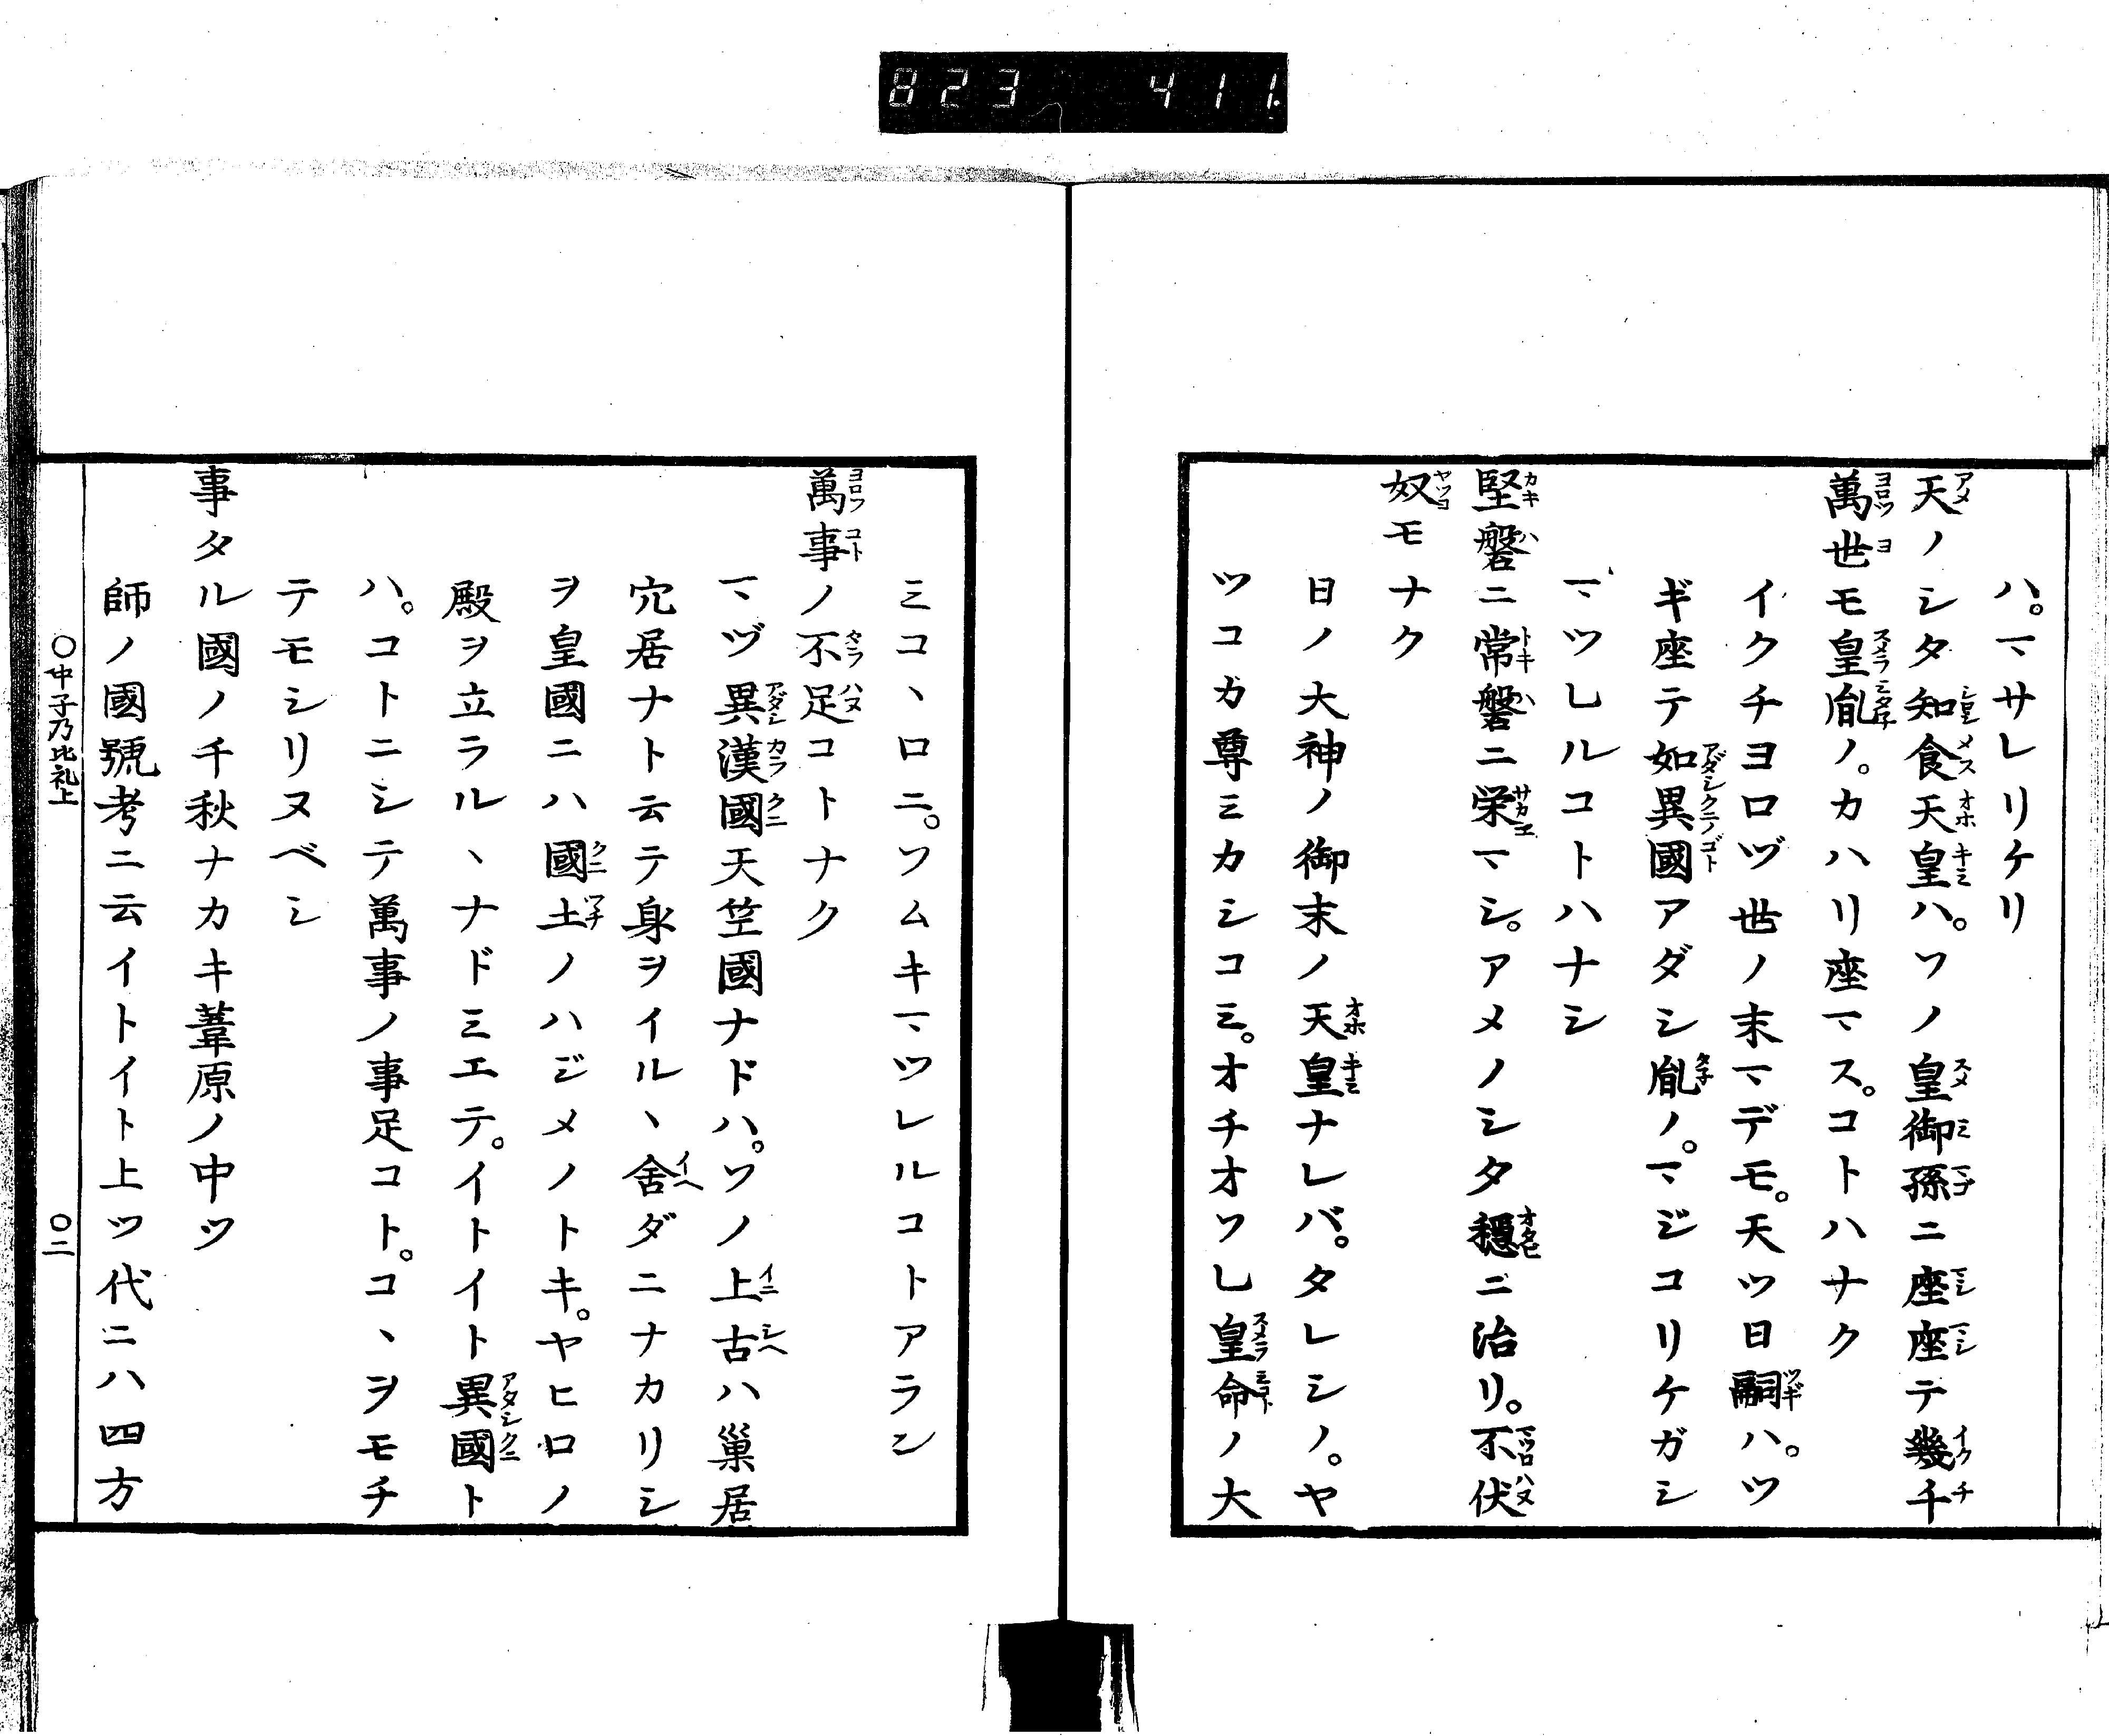 823 411.
ハ。マサレリケリ
天ノシタ知食天皇ハ。ソノ皇御孫ニ座座テ幾千
萬世モ皇胤ノ。カハリ座マス。コトハナク
イクチヨロヅ世ノ末マデモ。天ツ日嗣ハ。ツ
ギ座テ如異國アダシ胤ノ。マジコリケガシ
マツレルコトハナシ
堅磐ニ常磐ニ栄マシ。アメノシタ穏ニ治リ。不伏
奴モナク
日ノ大神ノ御末ノ天皇ナレバ。タレシノ。ヤ
ツコガ尊ミカシコミ。オチオソレ皇命ノ大
ミコヽロニ。ソムキマツレルコトアラン
萬事ノ不足コトナク
マヅ異漢國天竺國ナドハ。ソノ上古ハ巢居
穴居ナト云テ身ヲイルヽ舍ダニナカリシ
ヲ皇國ニハ國土ノハジメノトキ。ヤヒロノ
殿ヲ立ラルヽナドミエテ。イトイト異國ト
ハ。コトニシテ萬事ノ事足コト。コヽヲモチ
テモシリヌベシ
事タル國ノ千秋ナカキ葦原ノ中ツ
師ノ國號考ニ云イトイト上ツ代ニハ四方
○中子乃比礼上 ○二